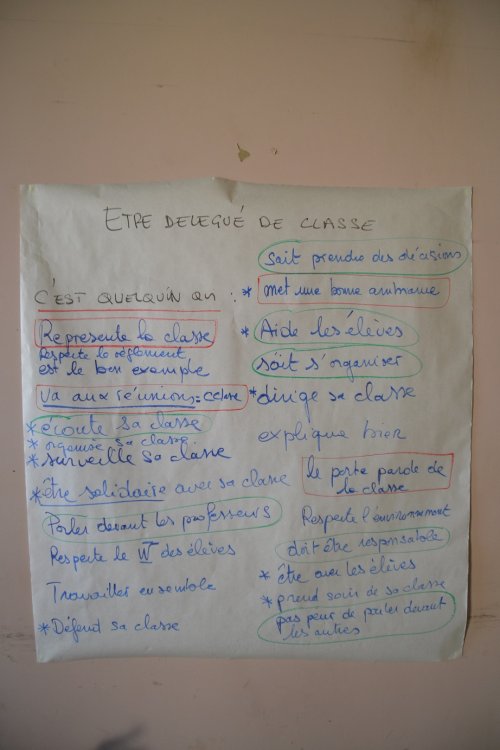 ETRE DELEGUÉ DE CLASSE
C'EST QUELQU'UN QUI :
Represente la classe
Respecte le règlement
est le bon exemple
Va aux réunions:
*écoute sa classe
* organise sa classe.
*surveille sa classe
*être solidaire avec sa classe
Parler devant les professeurs
Respecte le W des élèves
Travailler ensemble
*Défend sa classe
sait prendre des décisions
* met une bonne ambiance
* Aide les élèves
sait s'organiser
*dirige sa classe
explique bien
le porte parole de
la classe
Respecte l'environnement
doit être responsable
* être avec les élèves
* prend soin de sa classe
pas peur de parler devant
les autres